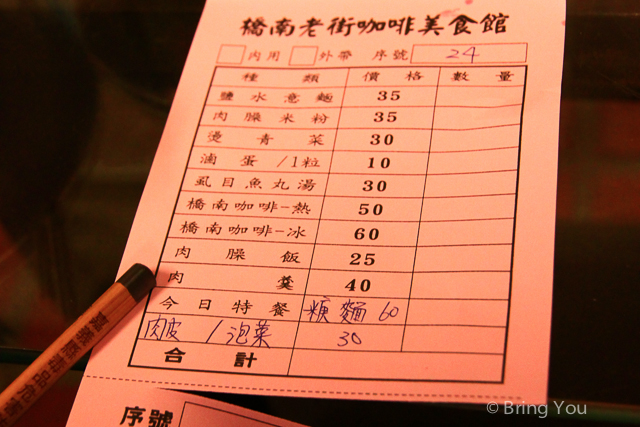 橋南老街咖啡美食館
內用 外帶 序號 24
種類 價格 數量
鹽水意麵 35
肉臊米粉 35
燙青菜 30
滷蛋/1粒 10
虱目魚丸湯 30
橋南咖啡-熱 50
橋南咖啡-冰 60
肉臊飯 25
肉羹 40
今日特餐 糖麵 60
肉皮/泡菜 30
合計
序號
© Bring You